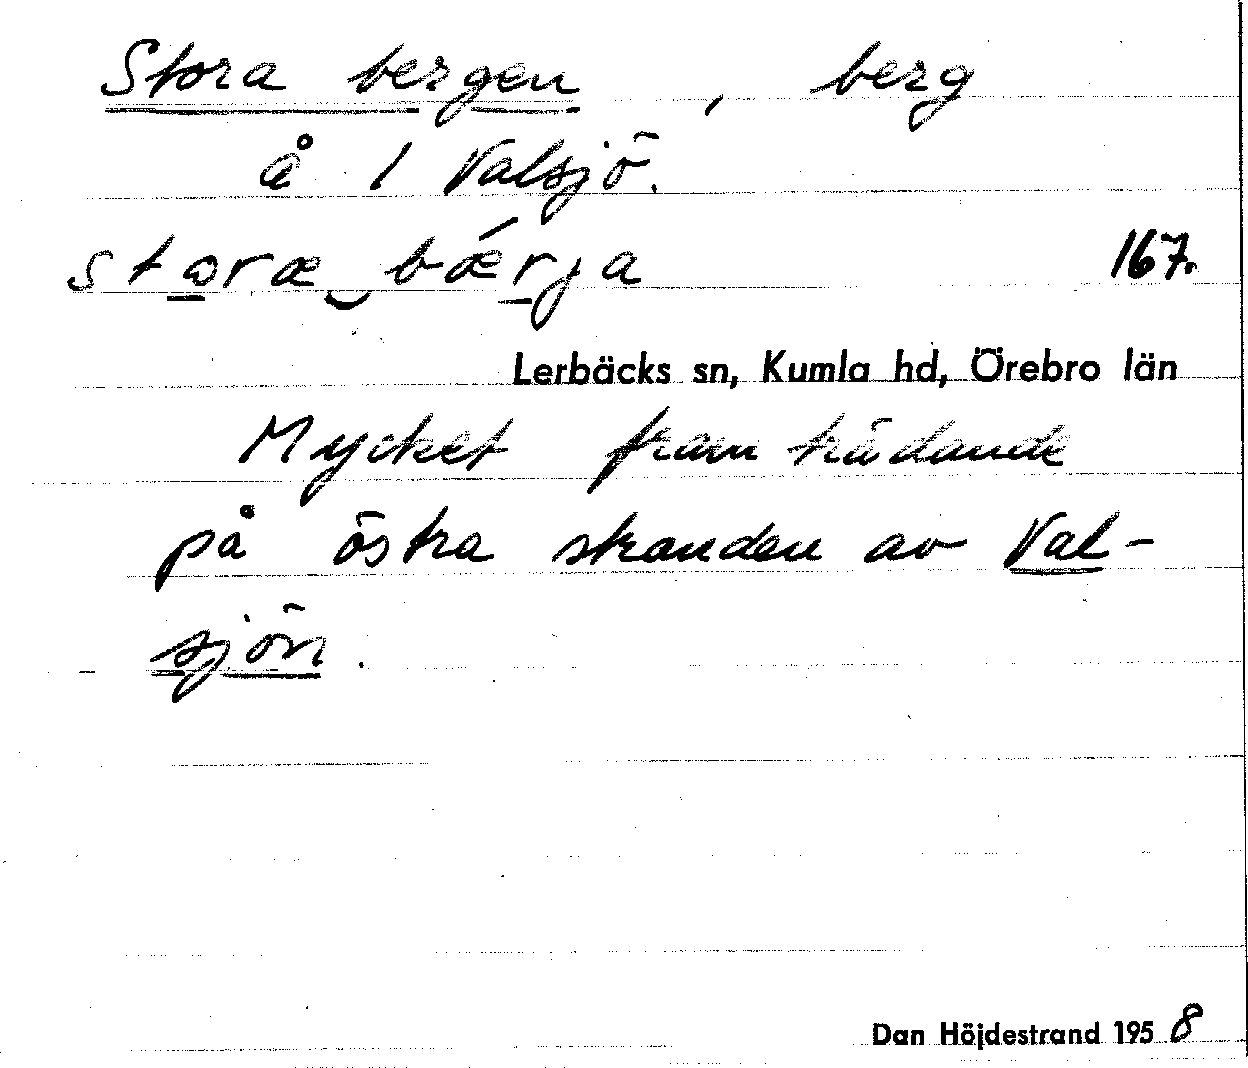 Stora bergen, berg
å 1 Valsjö.
storæ‿bǽrja 167.
Lerbäcks sn, Kumla hd, Örebro län
Mycket framträdande
på östra stranden av Val-
sjön.
Dan Höjdestrand 1958